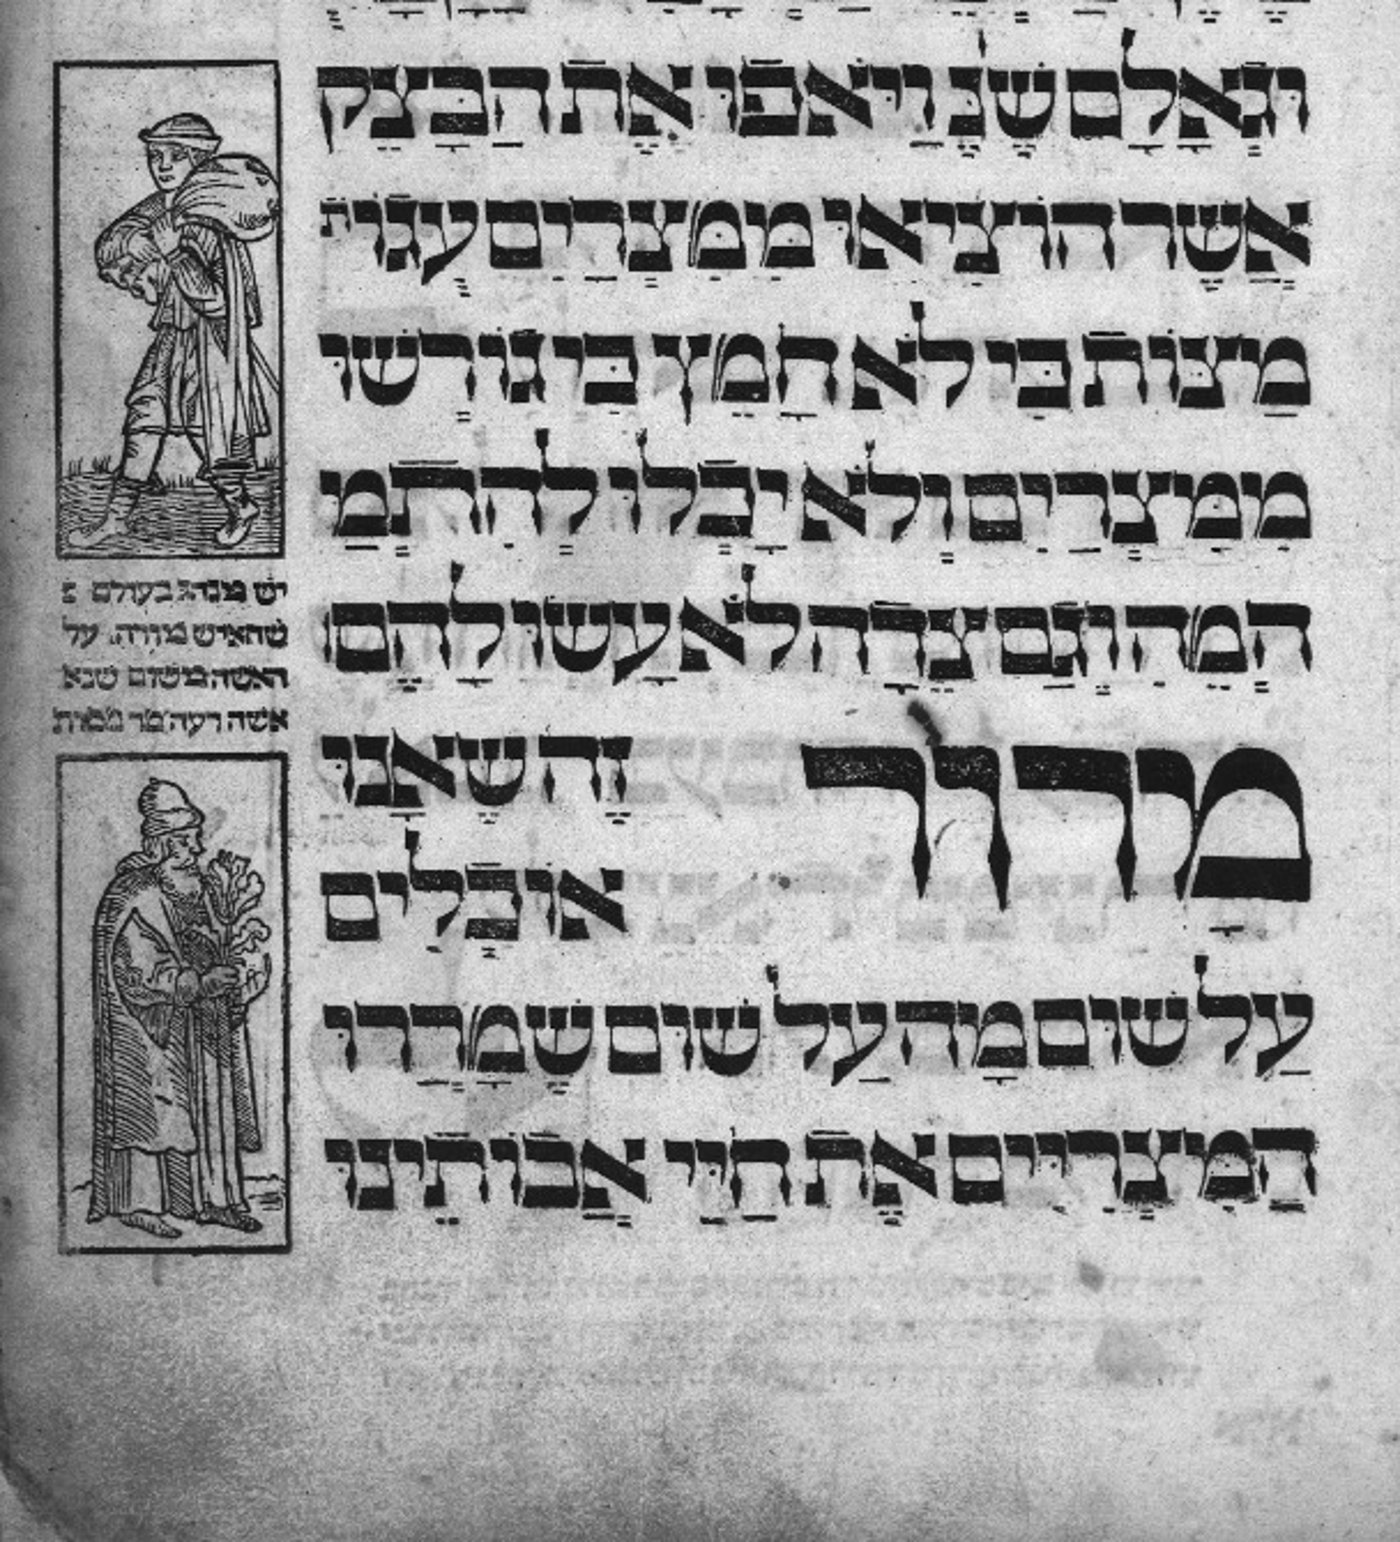 וּגְאָלָם שֶׁנֶּ וַיֹּאפוּ אֶת הַבָּצֵק
אֲשֶׁר הוֹצִיאוּ מִמִּצְרַיִם עֻגוֹת
מַצּוֹת כִּי לֹא חָמֵץ כִּי גוֹרְשׁוּ
מִמִּצְרַיִם וְלֹא יָכְלוּ לְהִתְמַ
הְמֵהַּ וְגַם צֵדָה לֹא עָשׂוּ לָהֶם ו
מָרוֹר זֶה שֶׁאָנוּ
אוֹכְלִים
עַל שׁוּם מָה עַל שׁוּם שֶׁמֵּרְרוּ
הַמִּצְרִיִּים אֶת חַיֵּי אֲבוֹתֵינוּ
יש מנהג בעולם
שהאיש מורה על
האשה משום שנא
אשה רעה מר ממות